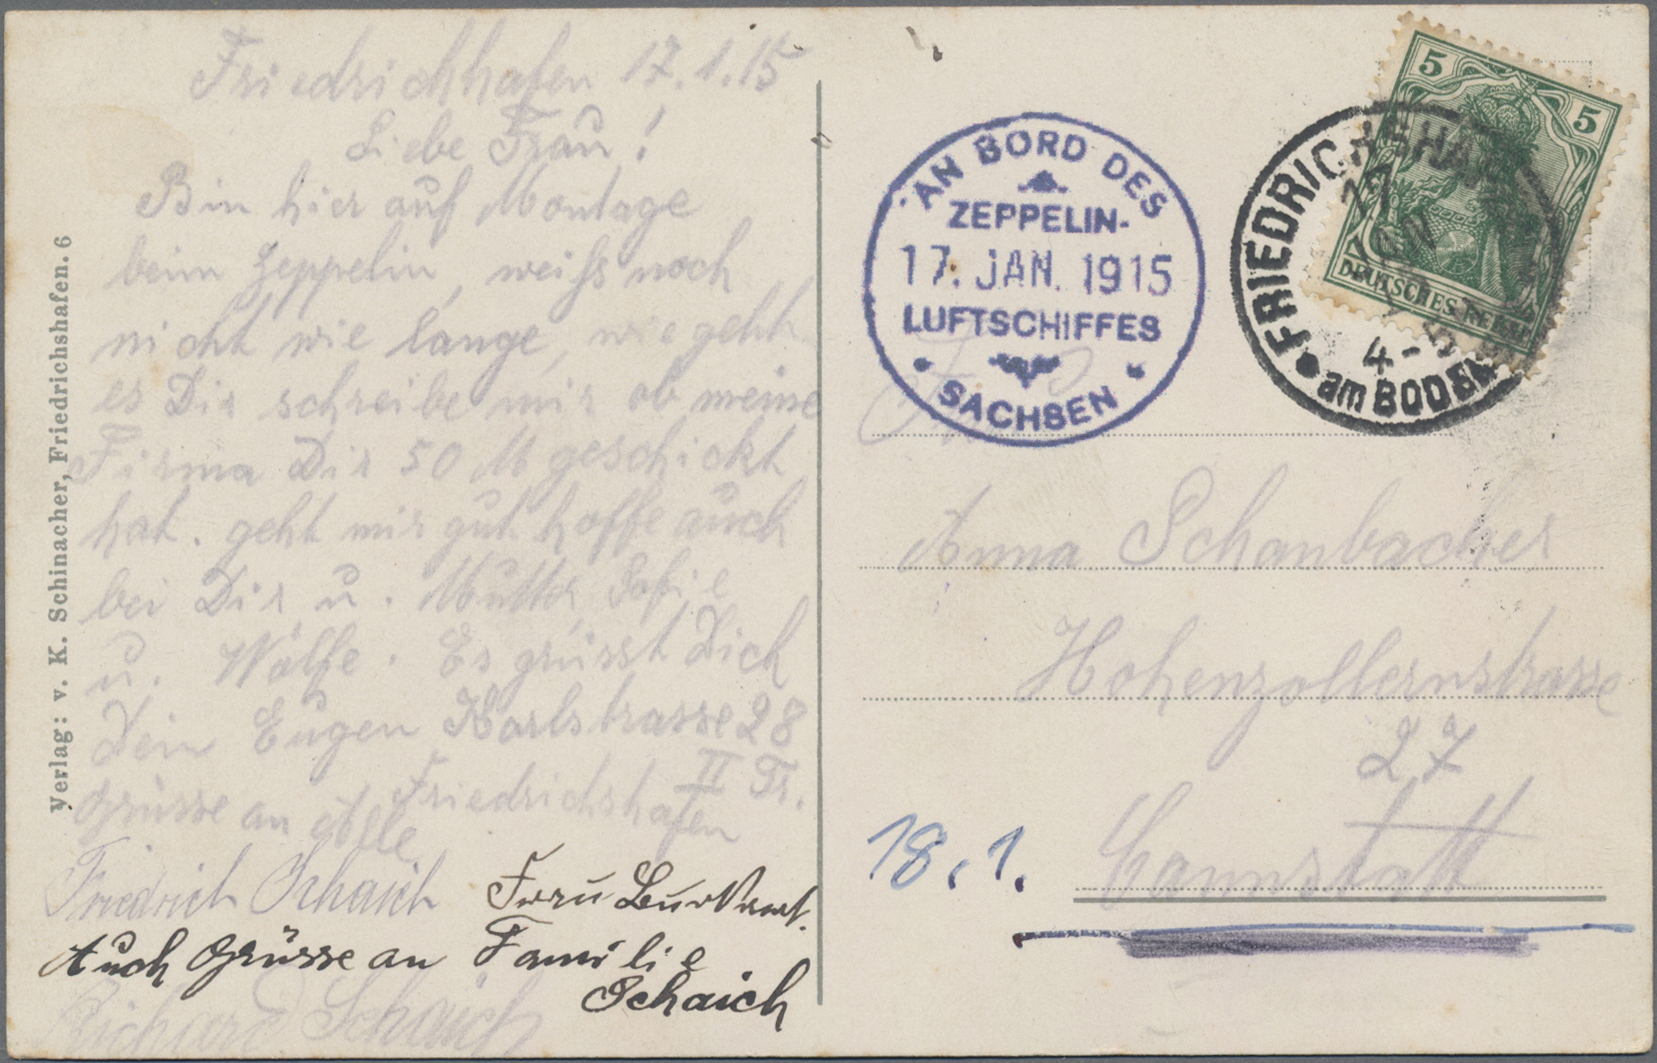 Friedrichhafen 17.1.15
Liebe Frau!
Bin hier auf Montage
beim Zeppelin, weiss noch
nicht wie lange, wie geht
es Dir schreibe mir ob meine
Firma Dir 50 M geschickt
hat. geht mir gut hoffe auch
bei Dir u. Mutter, Sofie
u. Wolfe. Es grüsst Dich
Dein Eugen Karlstrasse 28
II Tr.
Friedrichshafen
Grüsse an Alle
Friedrich Schaich
Frau
Auch Grüsse an Familie
Schaich
Richard Schaich
Verlag: v. K. Schinacher, Friedrichshafen. 6
AN BORD DES
ZEPPELIN-
17. JAN. 1915
LUFTSCHIFFES
SACHSEN
5 5
DEUTSCHES REICH
FRIEDRICHSHAF
17
4-5
am BODEN
Frau
Anna Schanbacher
Hohenzollernstrasse
27
Cannstatt
18.1.